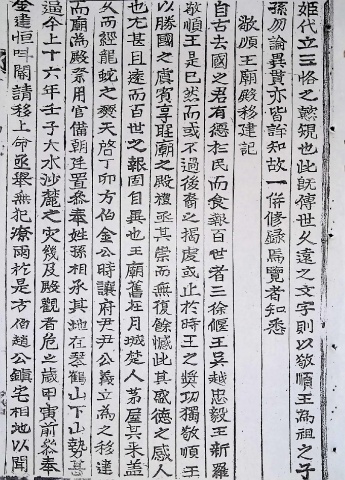 姫代立三恪之懿䂓也此旣傳世久遠之文字則以敬順王為祖之子
孫勿論異貫亦皆詳知故一併修錄爲覽者知悉
敬順王廟殿移建記
自古去國之君有德於民而食報百世者三徐偃王吳越忠毅王新羅
敬順王是已然而或不過後裔之揭虔或止於時王之奬功獨敬順王
以勝國之賓享廟之殿禮亟其崇而無復餘憾此其盛德之感人
也尤甚且遠而百世之報固自異也王廟舊在月城東人茅屋其來盖
久而經龍蛇之燹天啓丁卯方伯金公時讓府尹尹公義立為之移建
而廟為殿祭用官備朝廷置叅奉姓孫相承其地在琴鶴山下山勢甚
逼今上十六年壬子大水沙麓之灾幾及殿觀者危之歲甲寅前叅奉
金建恒呌閽請移上命亟舉無犯潦雨於是方伯趙公鎭宅相地以聞